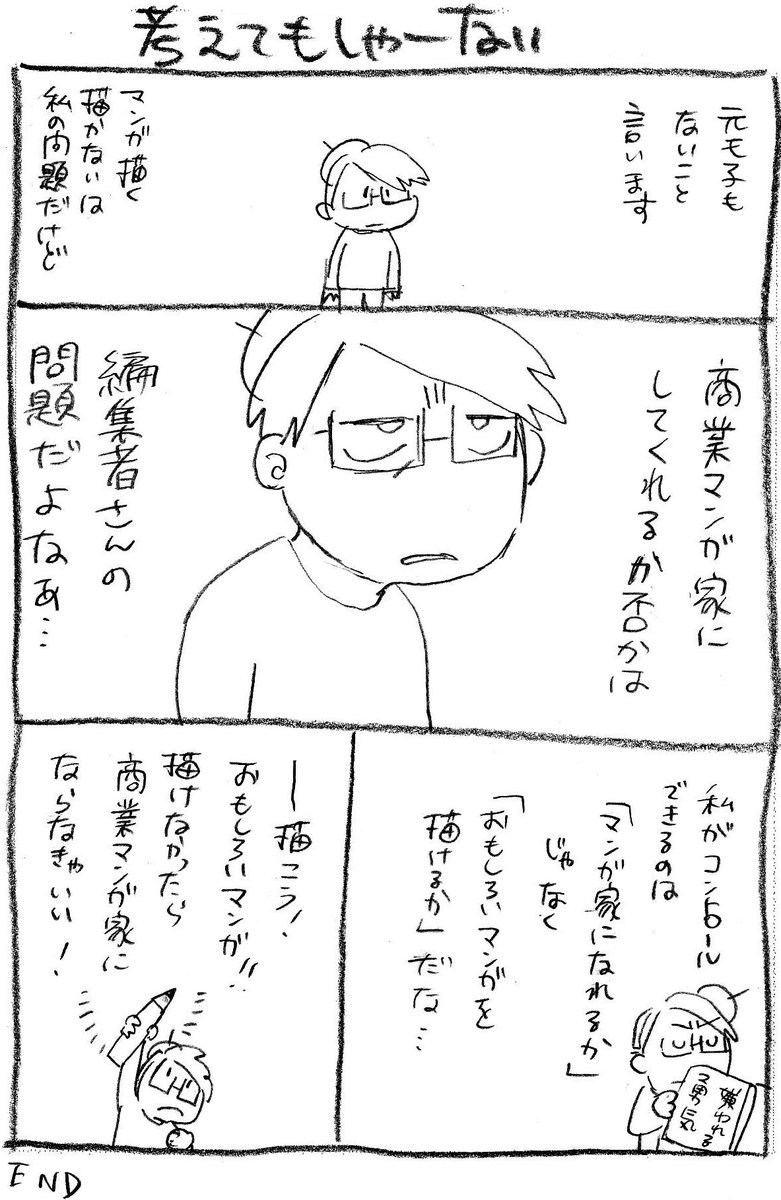 考えてもしゃーない
元も子も
ないこと
言います
マンガ描く
描かないは
私の問題だけど
商業マンガ家に
してくれるか否かは
編集者さんの
問題だよなぁ…
私がコントロール
できるのは
「マンガ家になれるか」
じゃなく
「おもしろいマンガを
描けるか」だな…
嫌われる
勇気
ー描こう!
おもしろいマンガ!!
描けなかったら
商業マンガ家に
ならなきゃいい!
END